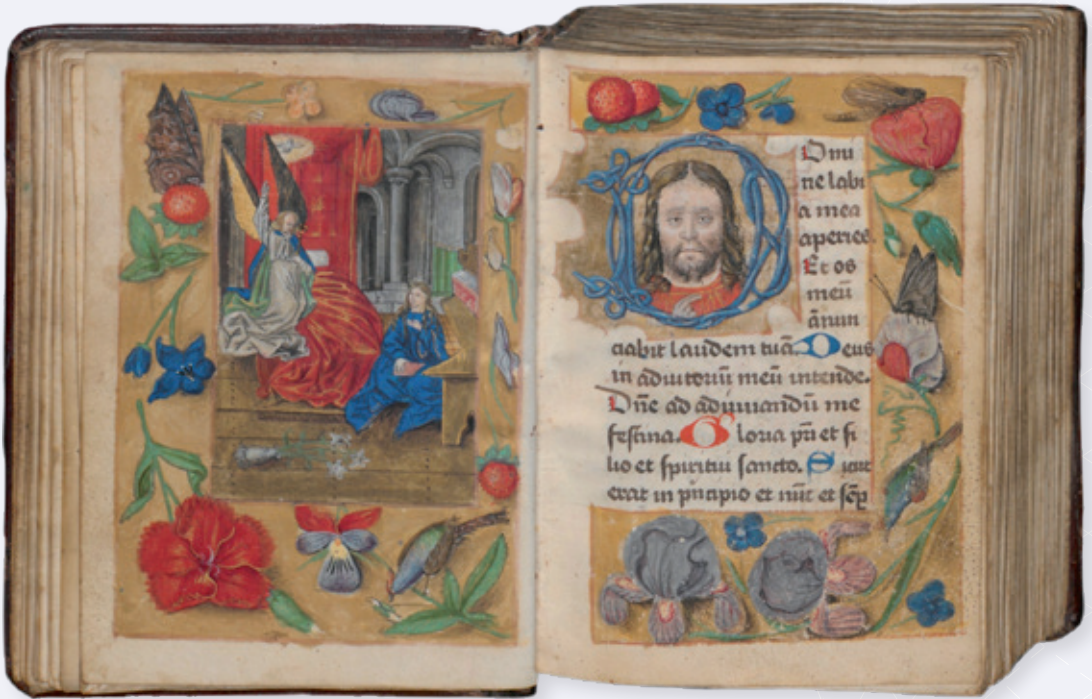 Domi
ne labi
a mea
aperies.
Et os
meū
ānun
ciabit laudem tuā. Deus
in adiutoriū meū intende.
Dn̄e ad adiuuandū me
festina. Gloria pr̄i et fi
lio et spiritui sancto. Sicut
erat in pn̄cipio et nūc et sēp